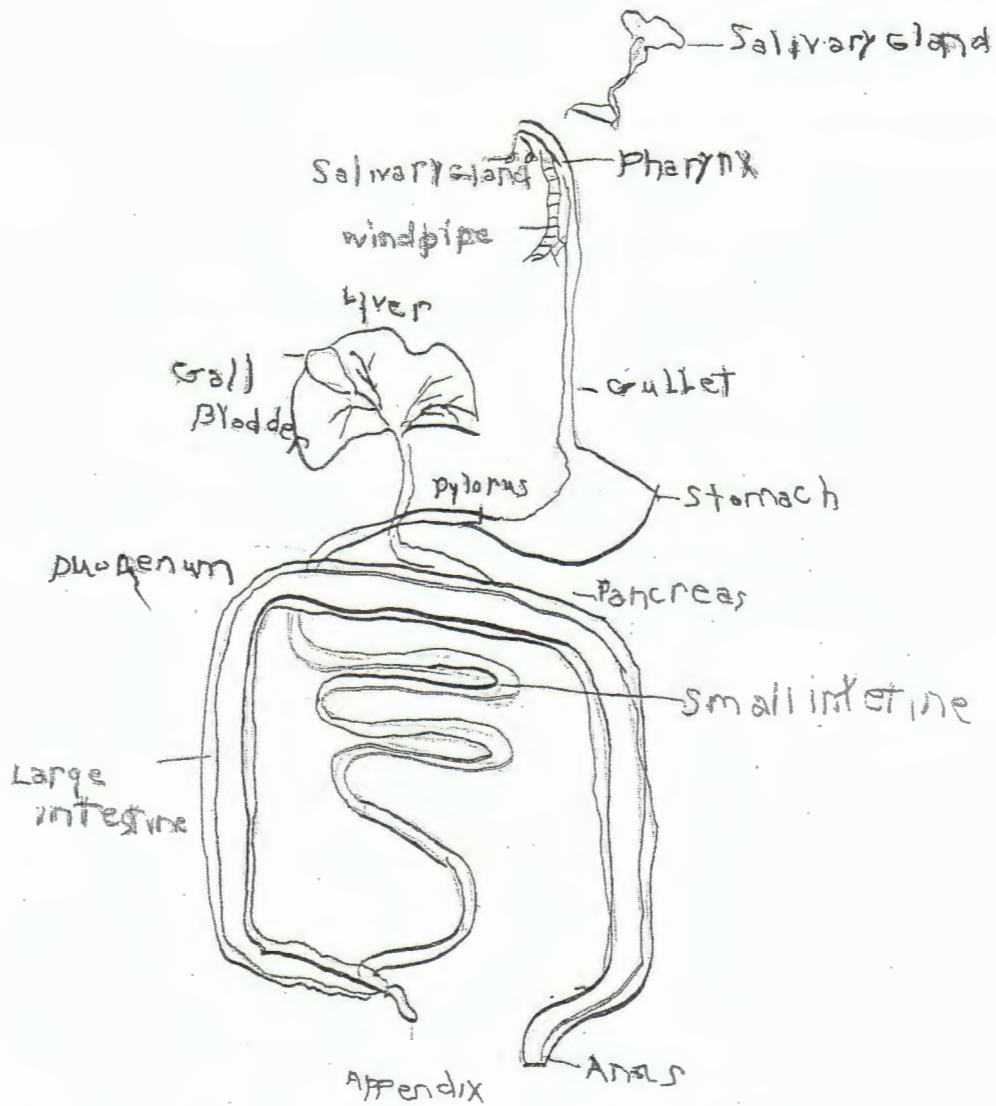 Salivary Gland
Salivary Gland
Pharynx
windpipe
Liver
Gall
Bladder
Gullet
pylorus
Stomach
Duodenum
Pancreas
Small intetine
Large
intestine
Appendix
Anus